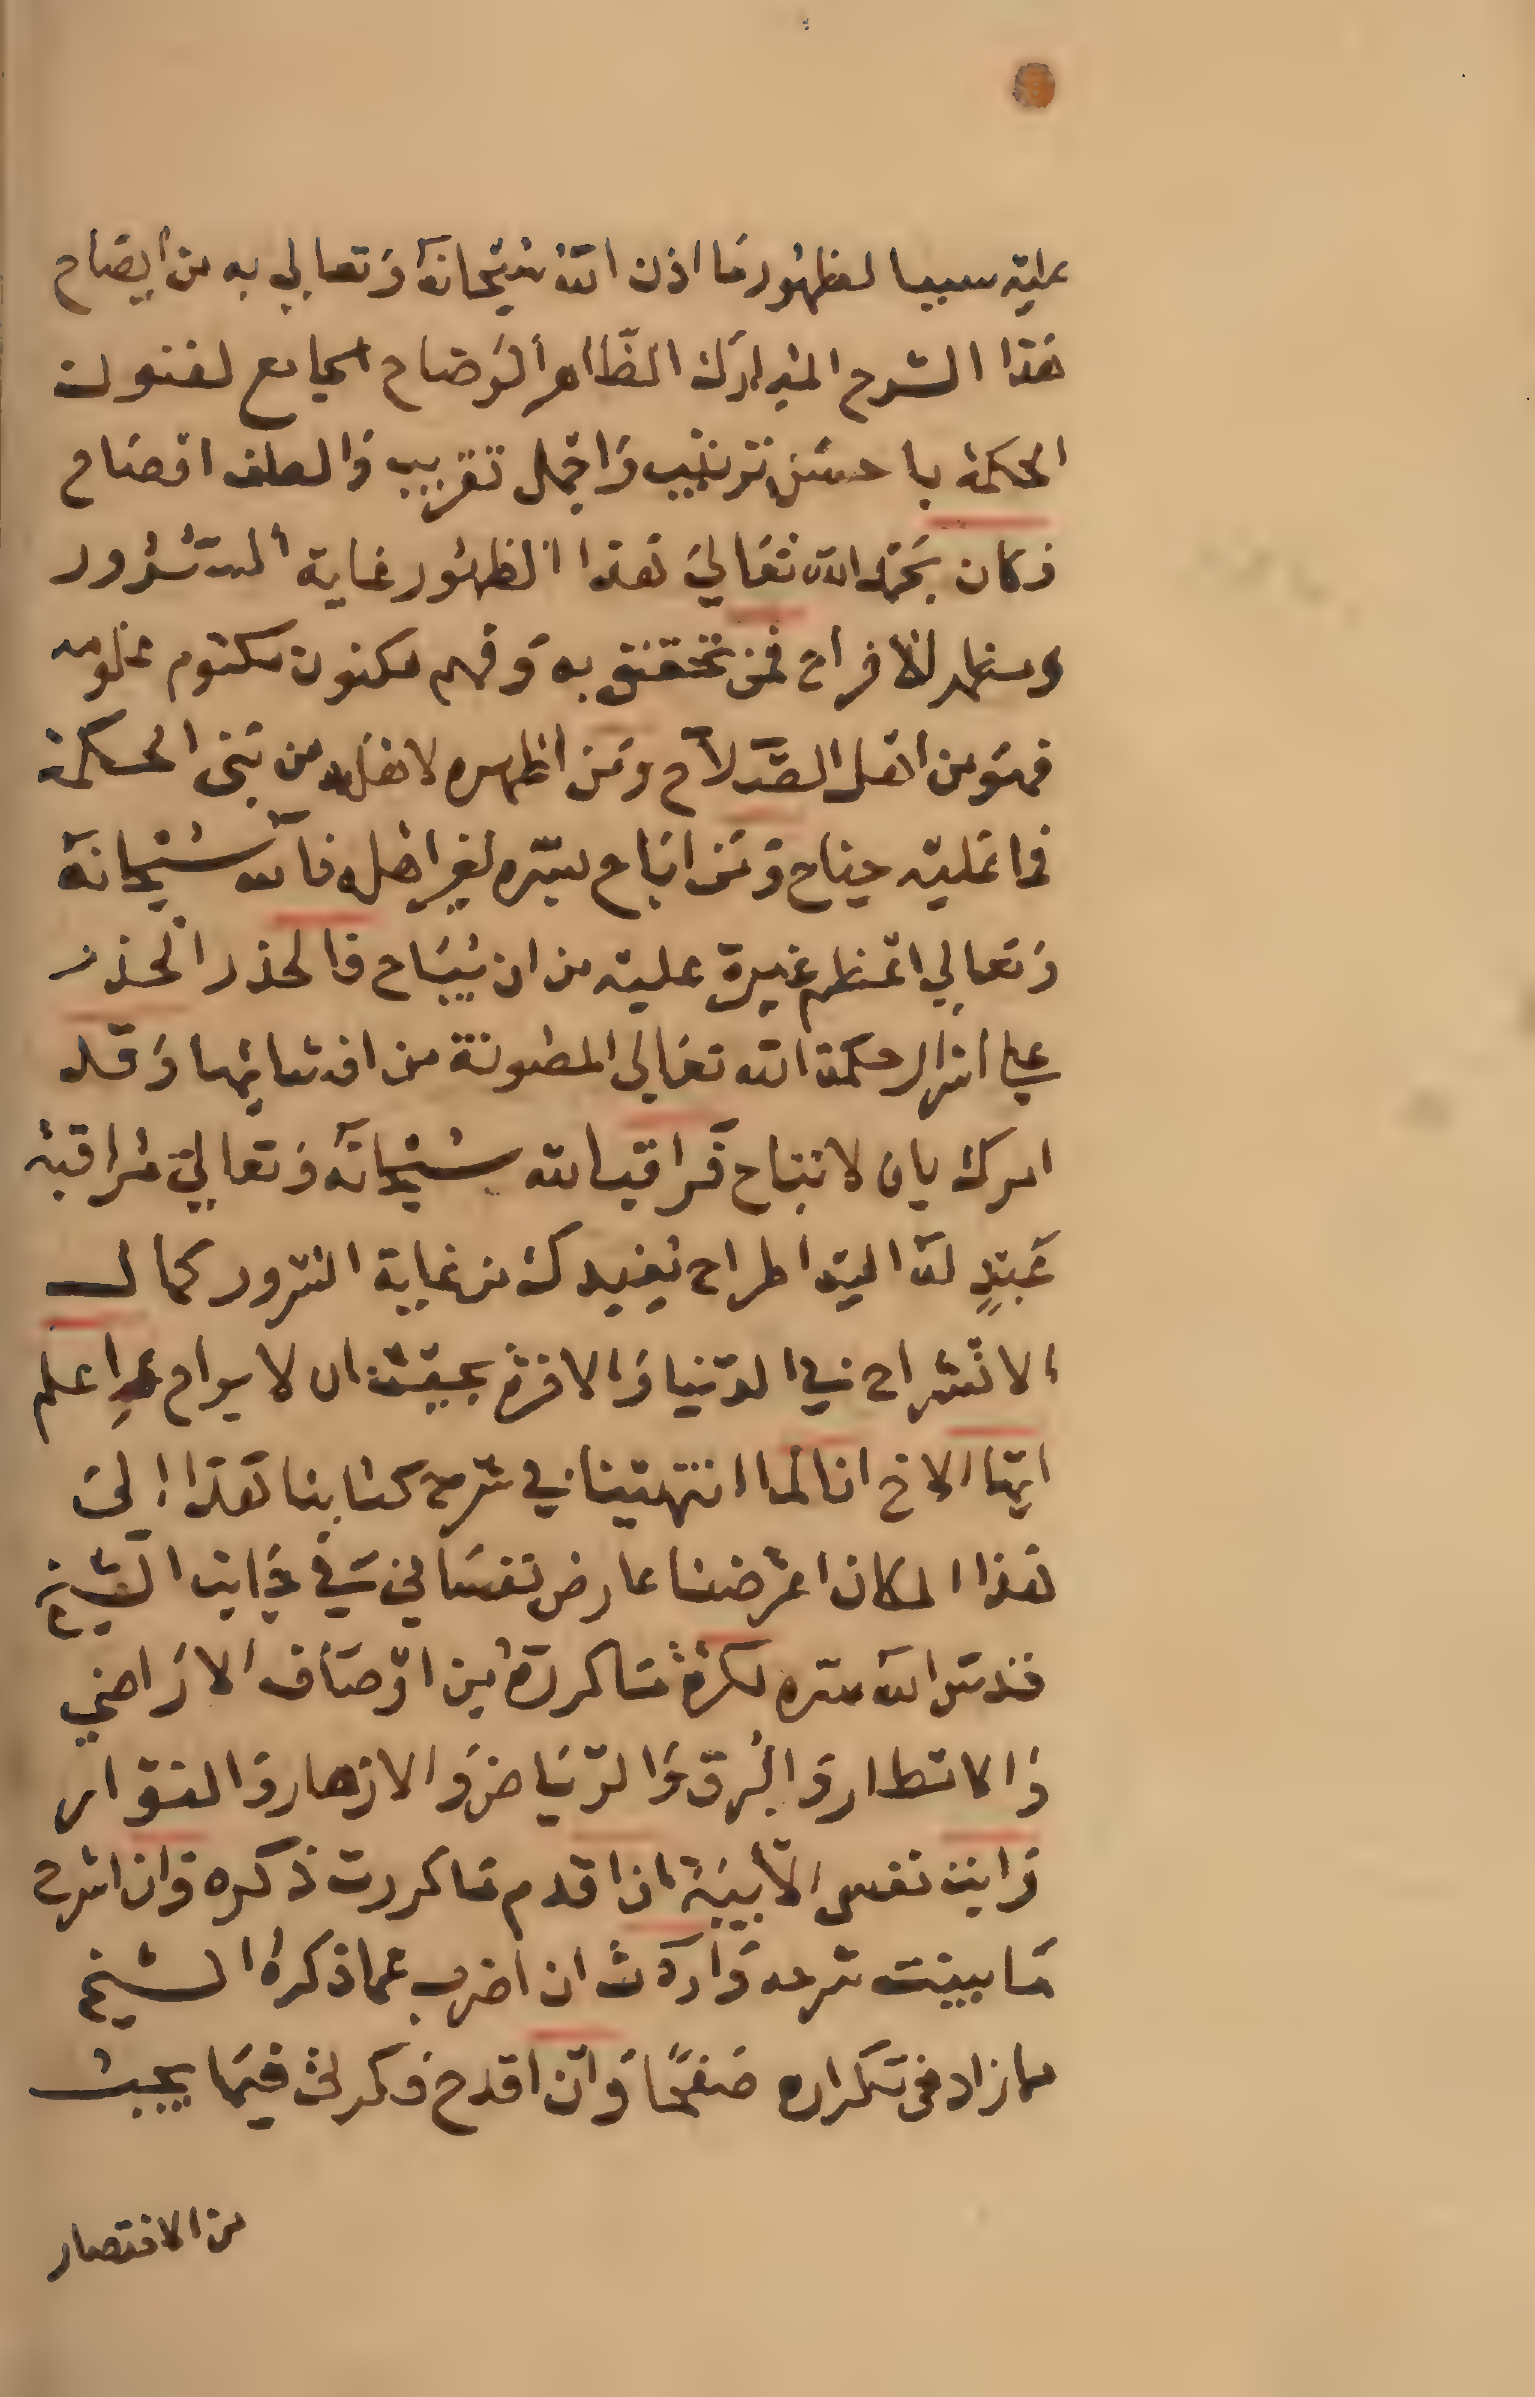 عليه سببا لظهور ما اذن الله سبحانه وتعالي به من ايضاح
هذا الشرح المبارك الظاهر الوضاح الجامع لفنون
الحكمة باحسن ترتيب واجمل تقريب والطف افصاح
فكان بحمد الله تعالي هذا الظهور غاية السرور
ومنها للافراح فمن تحقق به وفهم مكنون مكتوم علومه
فهو من اهل الصلاح ومن اظهره لاهله من بني الحكمة
فما عليه جناح ومن اباح بسره لغير اهله فالله سبحانه
وتعالي اعظم غيرة عليه من ان يباح فالحذر الحذر
علي اسرار حكمة الله تعالي المصونة من افشائها وقد
امرك بان لا تباح فراقب الله سبحانه وتعالي مراقبة
عبدٍ له اليه اطراح يفيدك من غاية السرور كمال
الانشراح في الدنيا والاخرة بحيث ان لا براح اعلم
ايها الاخ انا لما انتهينا في شرح كتابنا هذا الي
هذا المكان اعترضنا عارض نفساني في رايت الشيخ
قدس الله سره لكثرة ما كرره من اوصاف الاراضي
والامطار والبرق والرياض والازهار والنوار
رايت نفس الابية ان اقدم ما كررت ذكره وان اشرح
ما بينت شرحه واردت ان اضرب عما ذكره الشيخ
مما زاد في تكراره صفحًا وان اقدح فكرك فيما يجب
من الاختصار